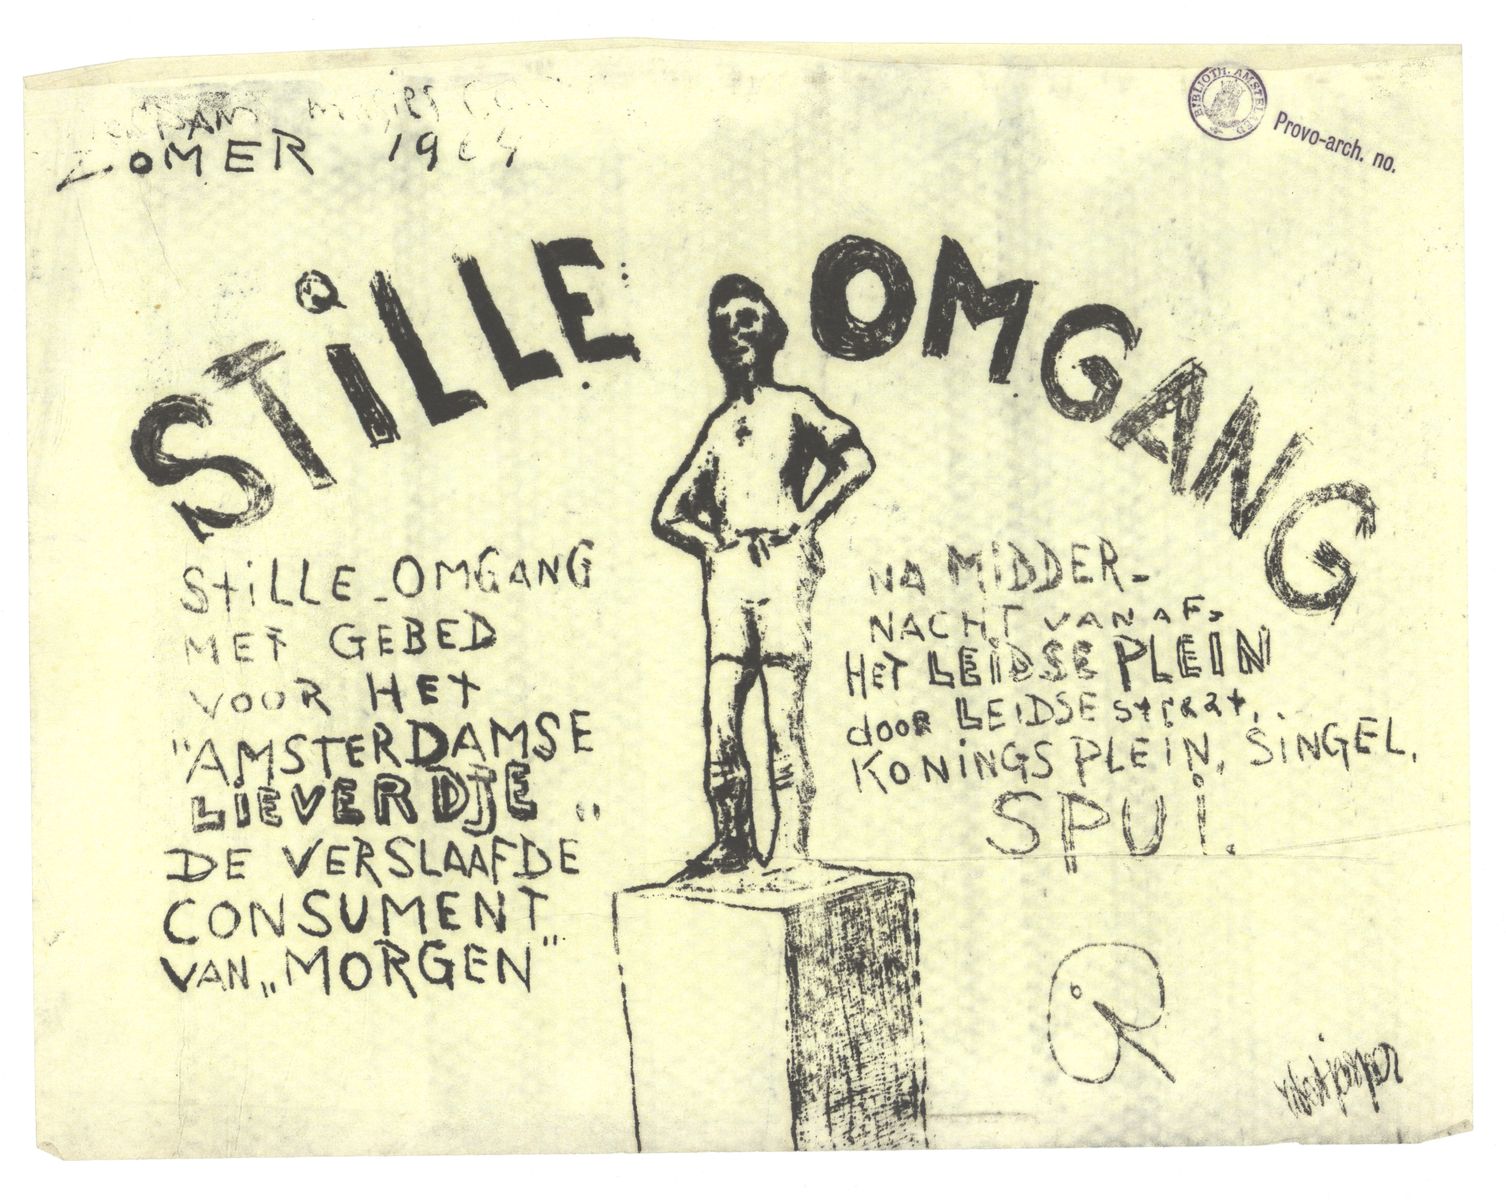 ZOMER 1964
BIBLIOTH. AMSTELAED
Provo-arch. no.
STiLLE OMGANG
STiLLE-OMGANG
MET GEBED
VOOR HET
"AMSTERDAMSE
LIEVERDJE"
DE VERSLAAFDE
CONSUMENT
VAN „MORGEN"
NA MIDDER-
NACHT VANAF
HET LEIDSE PLEIN
door LEIDSE straat,
KONINGSPLEIN, SiNGEL,
SPUi.